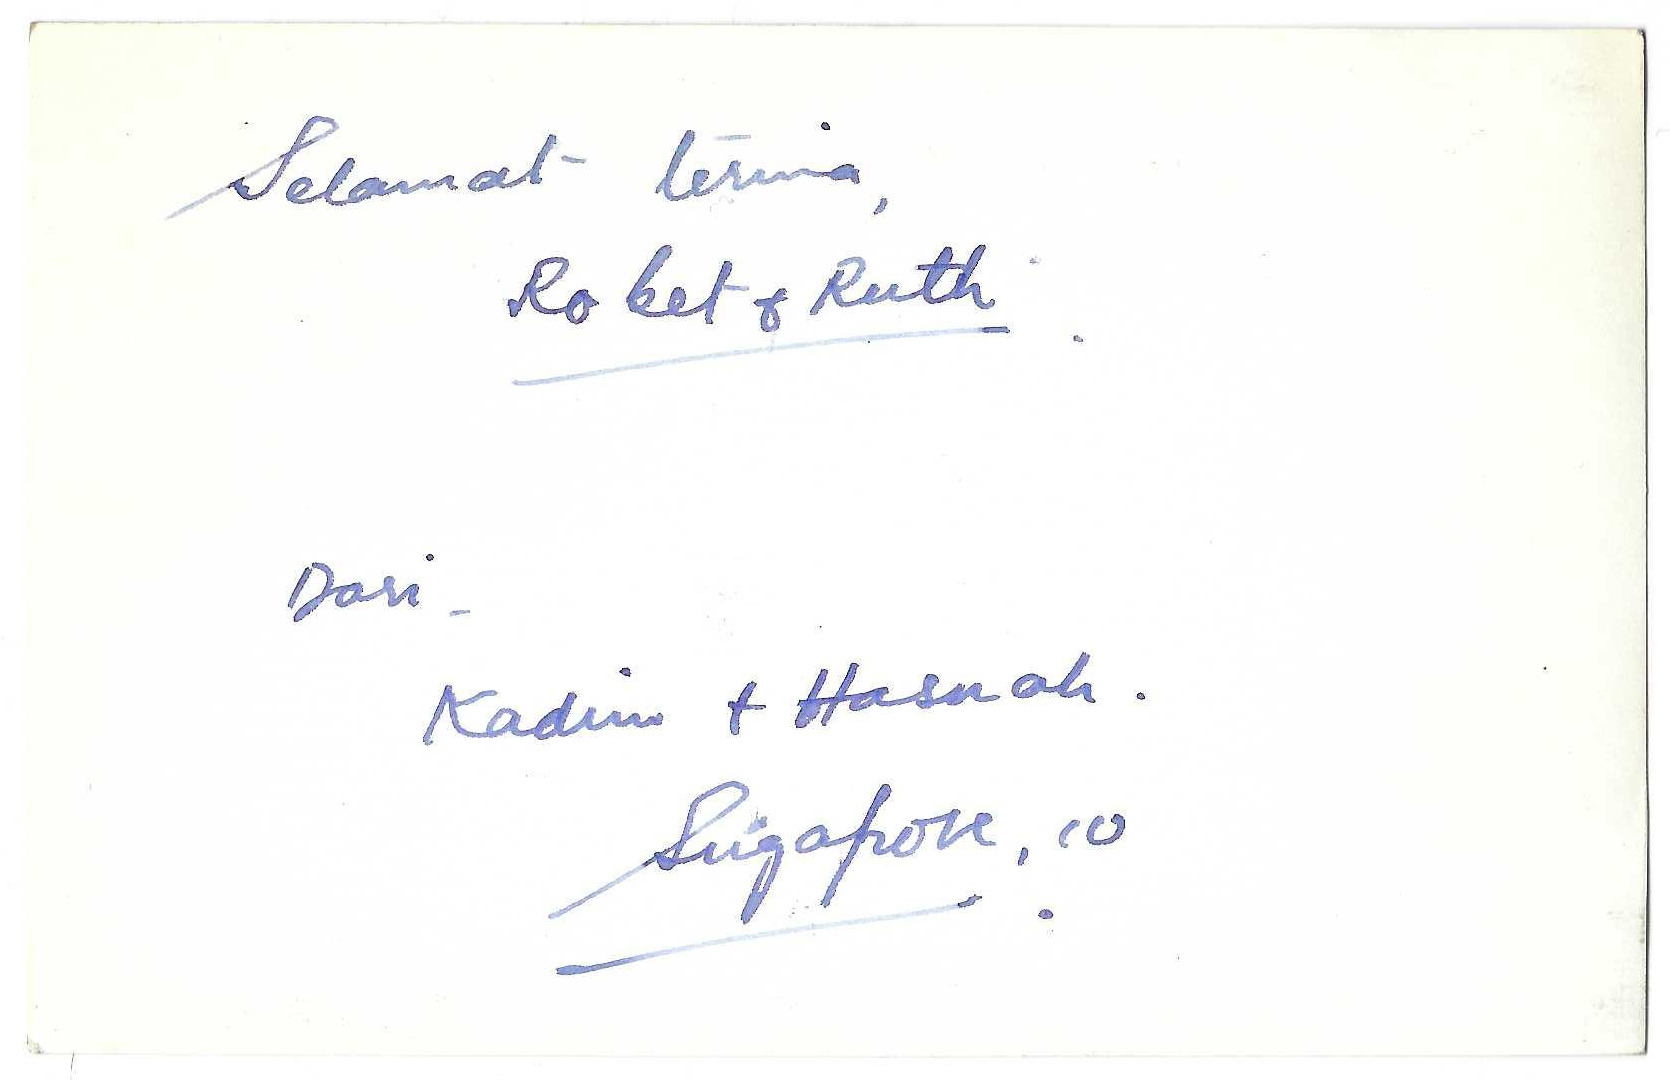 Selamat terima,
Robet & Ruth.
Dari -
Kadim + Hasnah.
Singapore, 10.